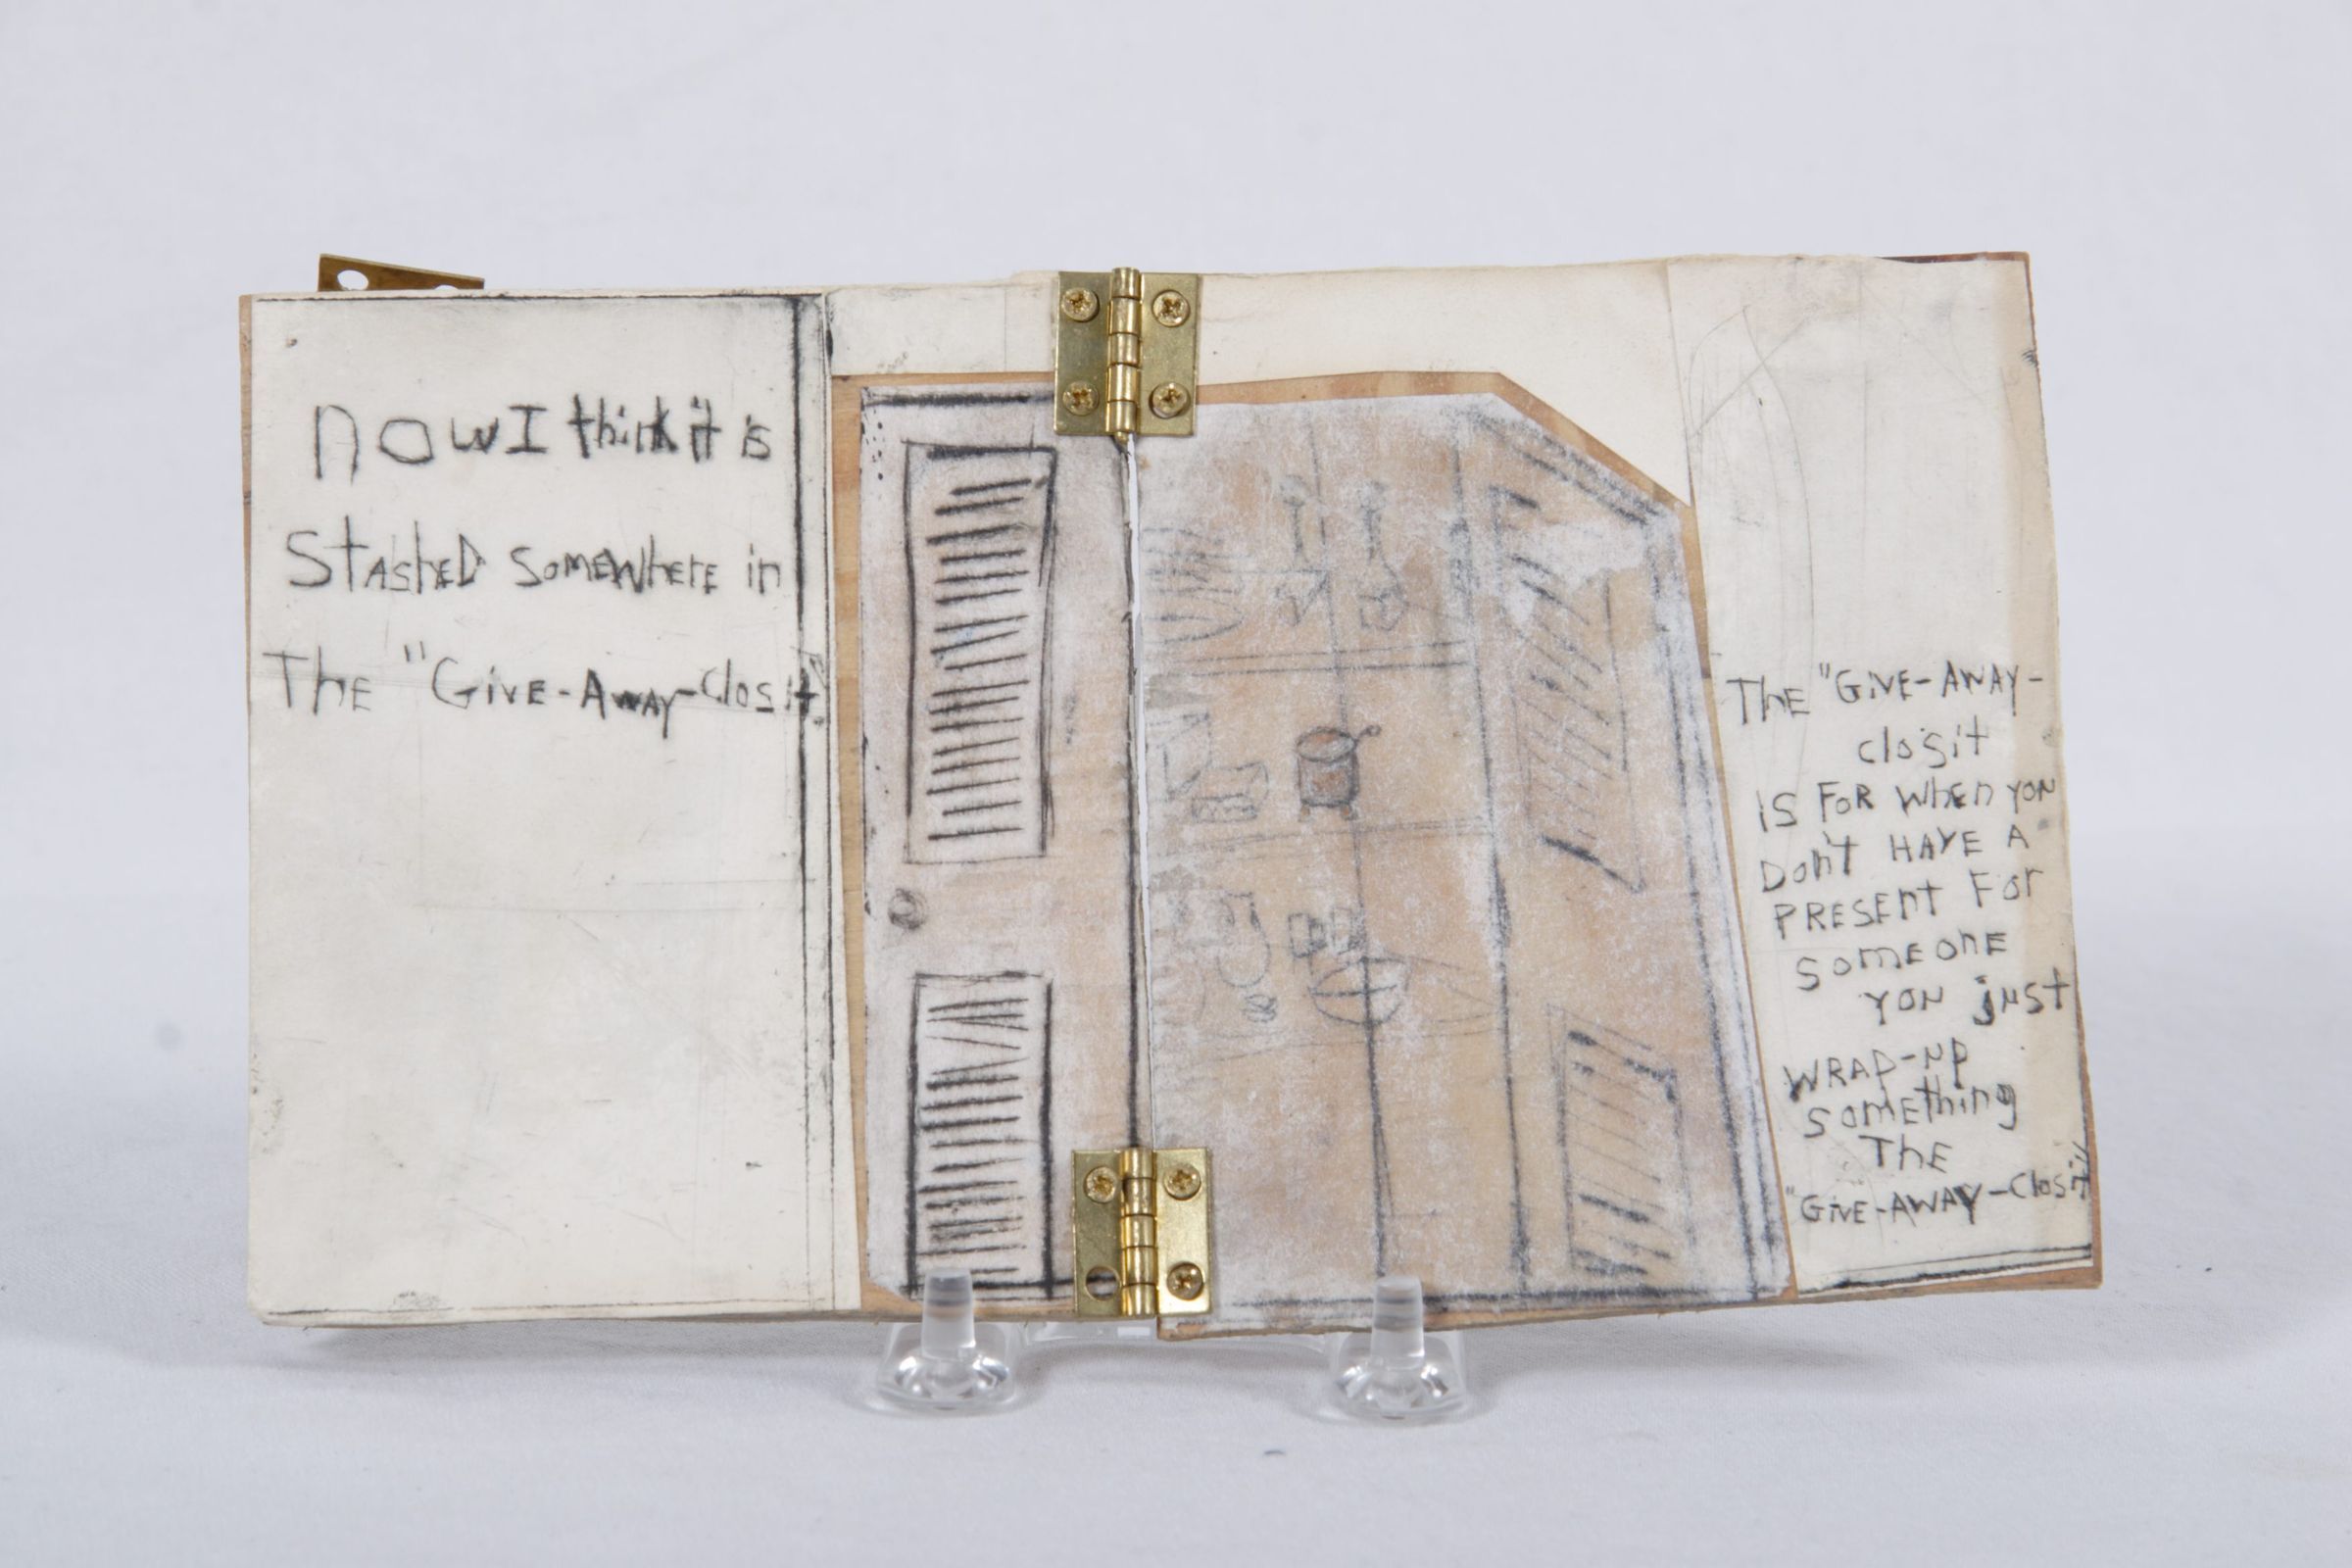 now I think it is
StAshED somEWhErE in
ThE "GivE-AwAy-Closit"
ThE "GIVE-AWAY-
closit
IS FOR WhEn you
Don't HAVE A
PRESEnt For
SomEonE
you just
WRAP-up
SomEthing
ThE
"GIVE-AWAY-Closit"